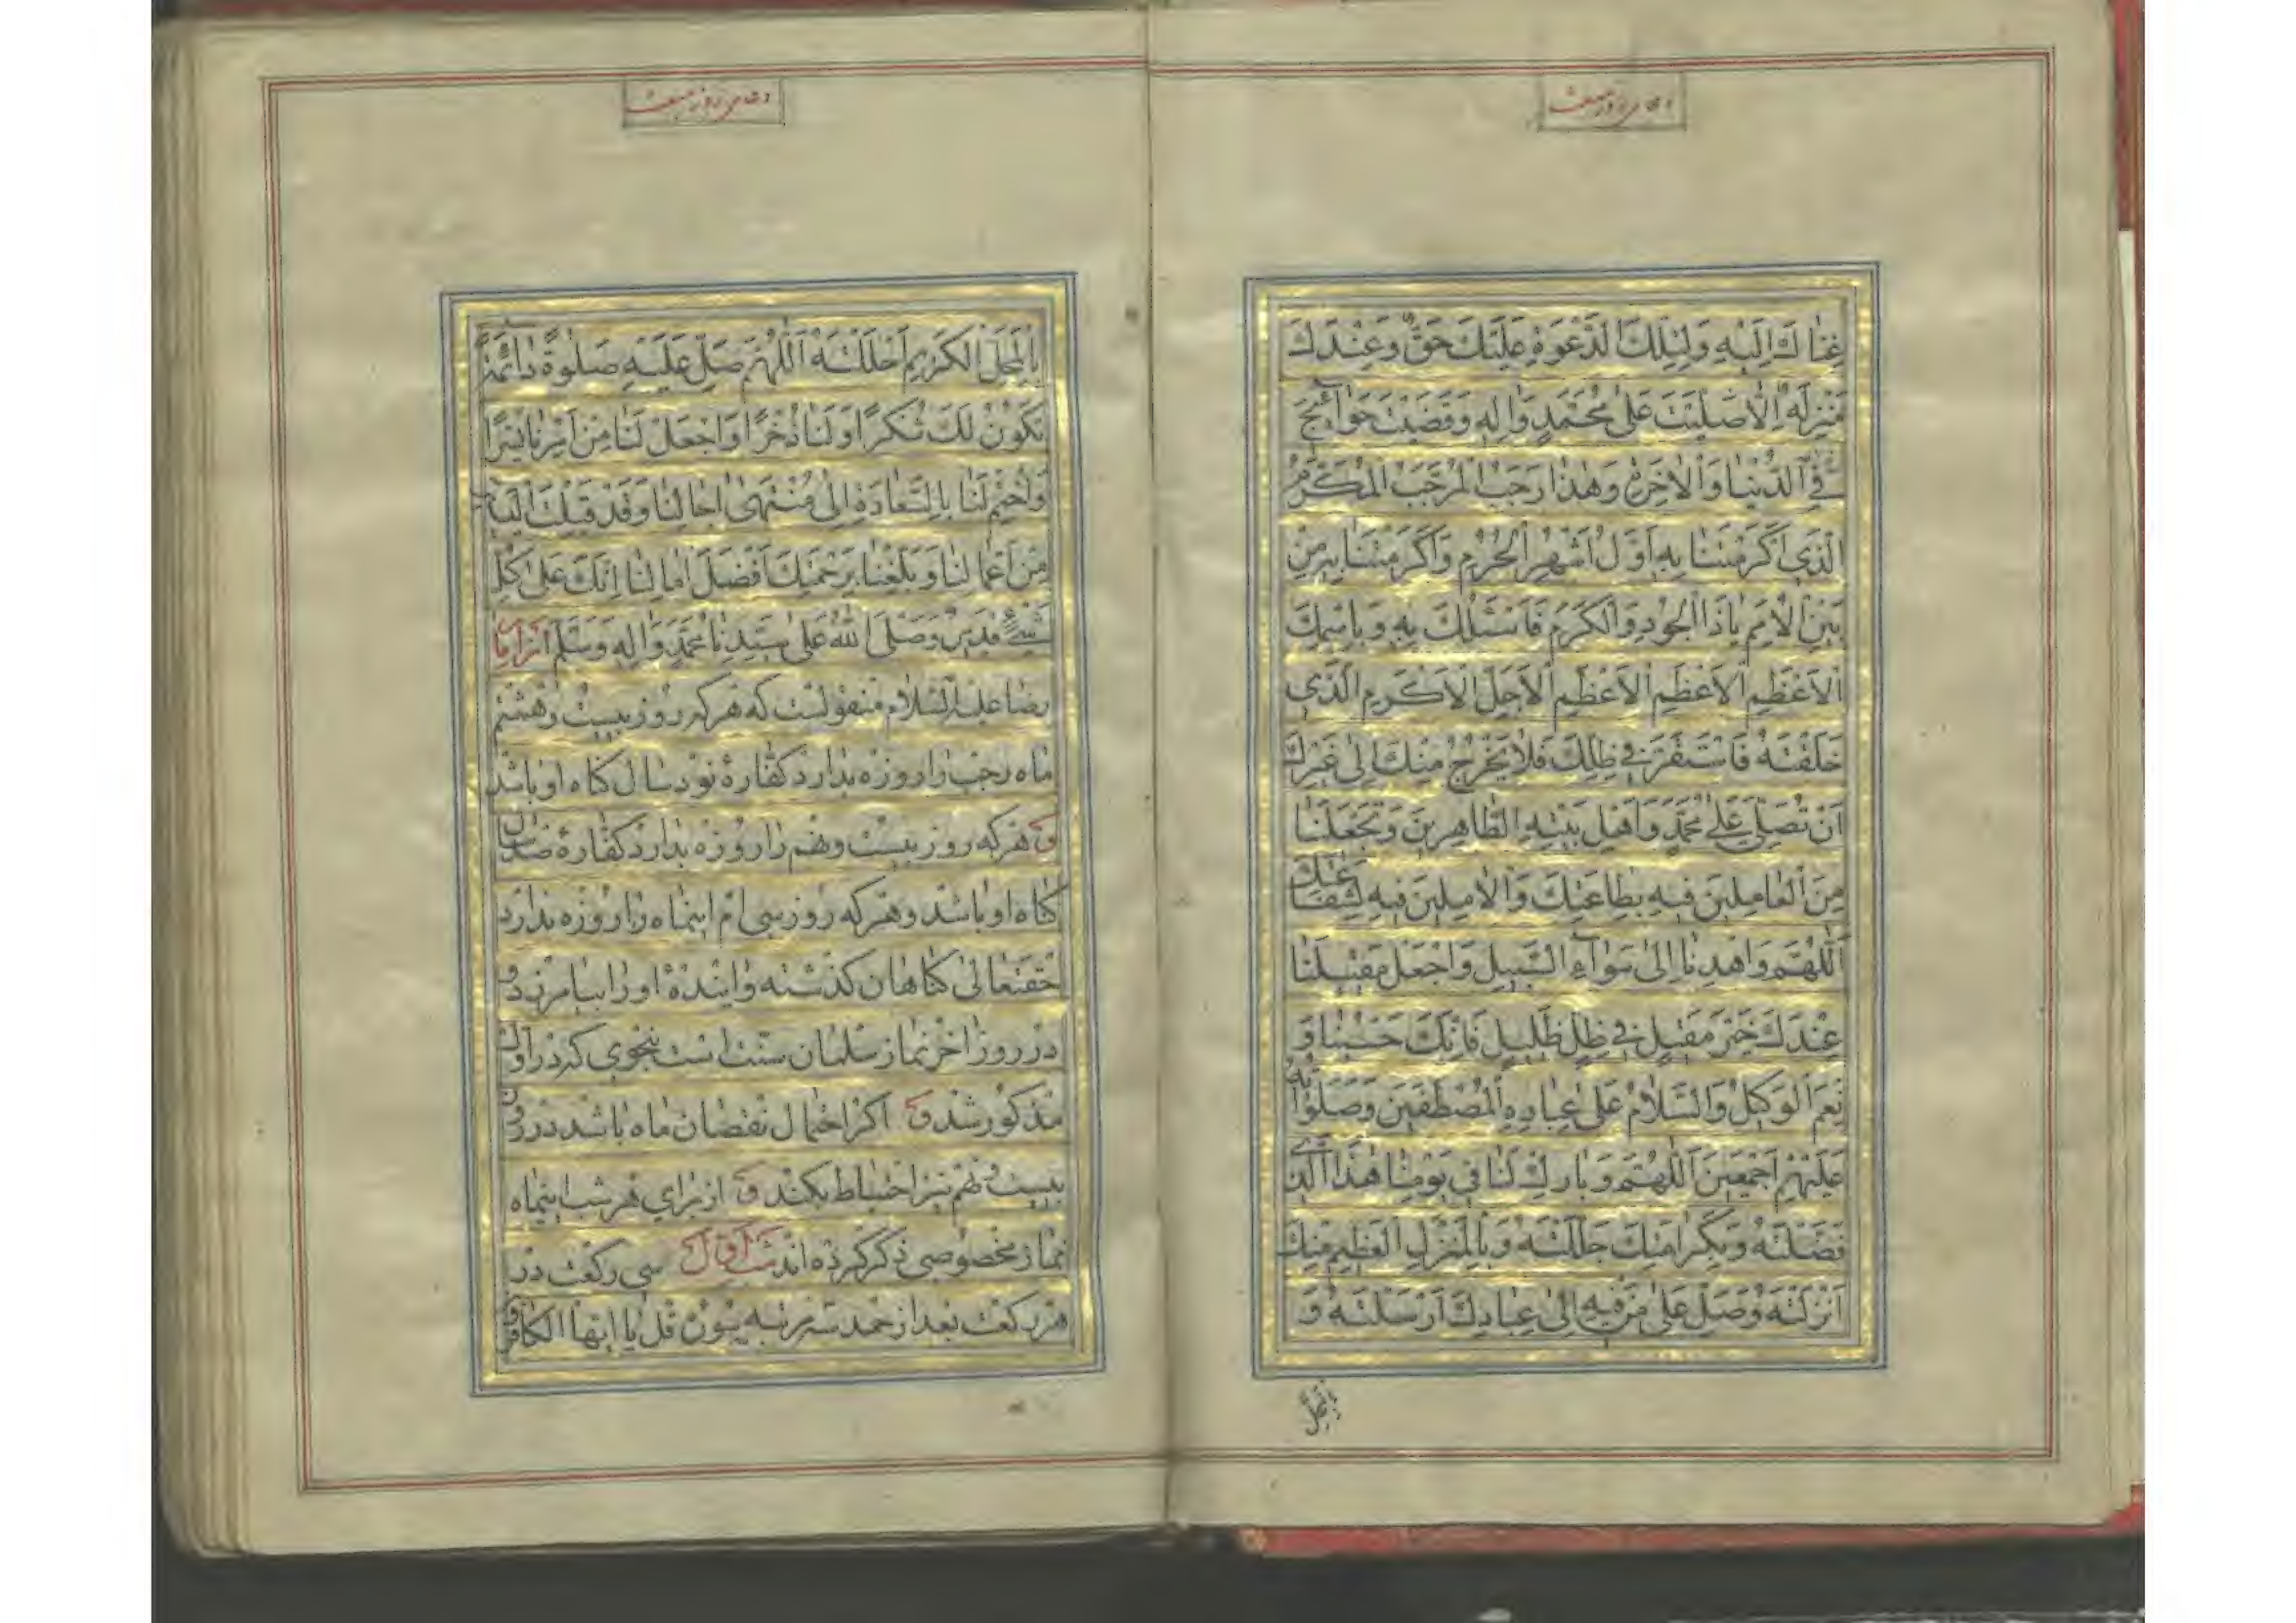 دعای روز مبعث
غِنَاكَ اِلَيْهِ وَلِتِلْكَ الدَّعْوَةِ عَلَيْكَ حَقٌّ وَعِنْدَكَ
مَنْزِلَةٌ اِلَّا صَلَّيْتَ عَلىٰ مُحَمَّدٍ وَاٰلِهِ وَقَضَيْتَ حَوٰآئِجَ
فِي الدُّنْيٰا وَالْاٰخِرَةِ وَهٰذٰا رَجَبُ الْمُرَجَّبُ الْمُكَرَّمُ
الَّذِي اَكْرَمْتَنٰا بِهِ اَوَّلُ اَشْهُرِ الْحُرُمِ وَاَكْرَمْتَنٰا بِهِ مِنْ
بَيْنِ الْاُمَمِ يٰا ذَا الْجُودِ وَالْكَرَمِ فَاَسْئَلُكَ بِهِ وَبِاسْمِكَ
الْاَعْظَمِ الْاَعْظَمِ الْاَعْظَمِ الْاَجَلِّ الْاَكْرَمِ الَّذِي
خَلَقْتَهُ فَاسْتَقَرَّ فِي ظِلِّكَ فَلٰا يَخْرُجُ مِنْكَ اِلىٰ غَيْرِكَ
اَنْ تُصَلِّيَ عَلىٰ مُحَمَّدٍ وَاَهْلِ بَيْتِهِ الطّٰاهِرِينَ وَتَجْعَلَنٰا
مِنَ الْعٰامِلِينَ فِيهِ بِطٰاعَتِكَ وَالْاٰمِلِينَ فِيهِ لِشَفٰاعَتِكَ
اَللّٰهُمَّ وَاهْدِنٰا اِلىٰ سَوٰآءِ السَّبِيلِ وَاجْعَلْ مَقِيلَنٰا
عِنْدَكَ خَيْرَ مَقِيلٍ فِي ظِلٍّ ظَلِيلٍ فَاِنَّكَ حَسْبُنٰا وَ
نِعْمَ الْوَكِيلُ وَالسَّلٰامُ عَلىٰ عِبٰادِهِ الْمُصْطَفَيْنَ وَصَلَوٰاتُهُ
عَلَيْهِمْ اَجْمَعِينَ اَللّٰهُمَّ وَبٰارِكْ لَنٰا فِي يَوْمِنٰا هٰذَا الَّذِي
فَضَّلْتَهُ وَبِكَرٰامَتِكَ جَلَّلْتَهُ وَبِالْمَنْزِلِ الْعَظِيمِ مِنْكَ
اَنْزَلْتَهُ وَصَلِّ عَلىٰ مَنْ فِيهِ اِلىٰ عِبٰادِكَ اَرْسَلْتَهُ وَ
بِالْمَحَلِّ
دعای روز مبعث
بِالْمَحَلِّ الْكَرِيمِ اَحْلَلْتَهُ اَللّٰهُمَّ صَلِّ عَلَيْهِ صَلٰوةً دٰائِمَةً
تَكُونُ لَكَ شُكْرًا وَلَنٰا ذُخْرًا وَاجْعَلْ لَنٰا مِنْ اَمْرِنٰا يُسْرًا
وَاخْتِمْ لَنٰا بِالسَّعٰادَةِ اِلىٰ مُنْتَهىٰ اٰجٰالِنٰا وَقَدْ قَبِلْتَ
مِنْ اَعْمٰالِنٰا وَبَلِّغْنٰا بِرَحْمَتِكَ اَفْضَلَ اٰمٰالِنٰا اِنَّكَ عَلىٰ كُلِّ
شَيْءٍ قَدِيرٌ وَصَلَّى اللّٰهُ عَلىٰ سَيِّدِنٰا مُحَمَّدٍ وَاٰلِهِ وَسَلَّمَ از امام
رضا علیه السّلام منقولست که هر که روز بیست وهشتم
ماه رجب را روزه بدارد کفّارهٔ نود سال کناه او باشد
و هر که روز بیست ونهم را روزه بدارد کفّارهٔ صد سال
کناه او باشد وهر که روز سی ام اینماه را روزه بدارد
حقتعالی کناهان کذشته وایندهٔ او را بیامرزد و
در روز اخر نماز سلمان سنّت است بنحوی که در اول
مذکور شد و اکر احتمال نقصان ماه باشد در روز
بیست ونهم نیز احتیاط بکند و از برای هر شب اینماه
نماز مخصوصی ذکر کرده اند شب اول سی رکعت در
هر رکعت بعد از حمد سه مرتبه سوره قل یا ایها الکافرون